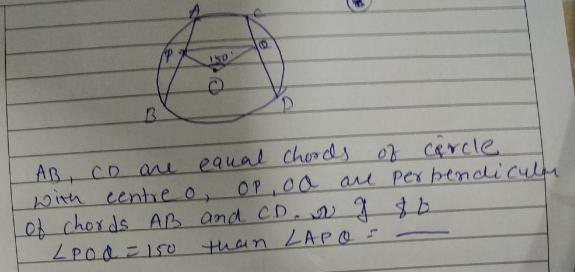 A C
P 150° Q
O
B D
AB, CD are equal chords of circle
with centre O, OP, OQ are perpendicular
of chords AB and CD.
∠POQ = 150 than ∠APQ = ___